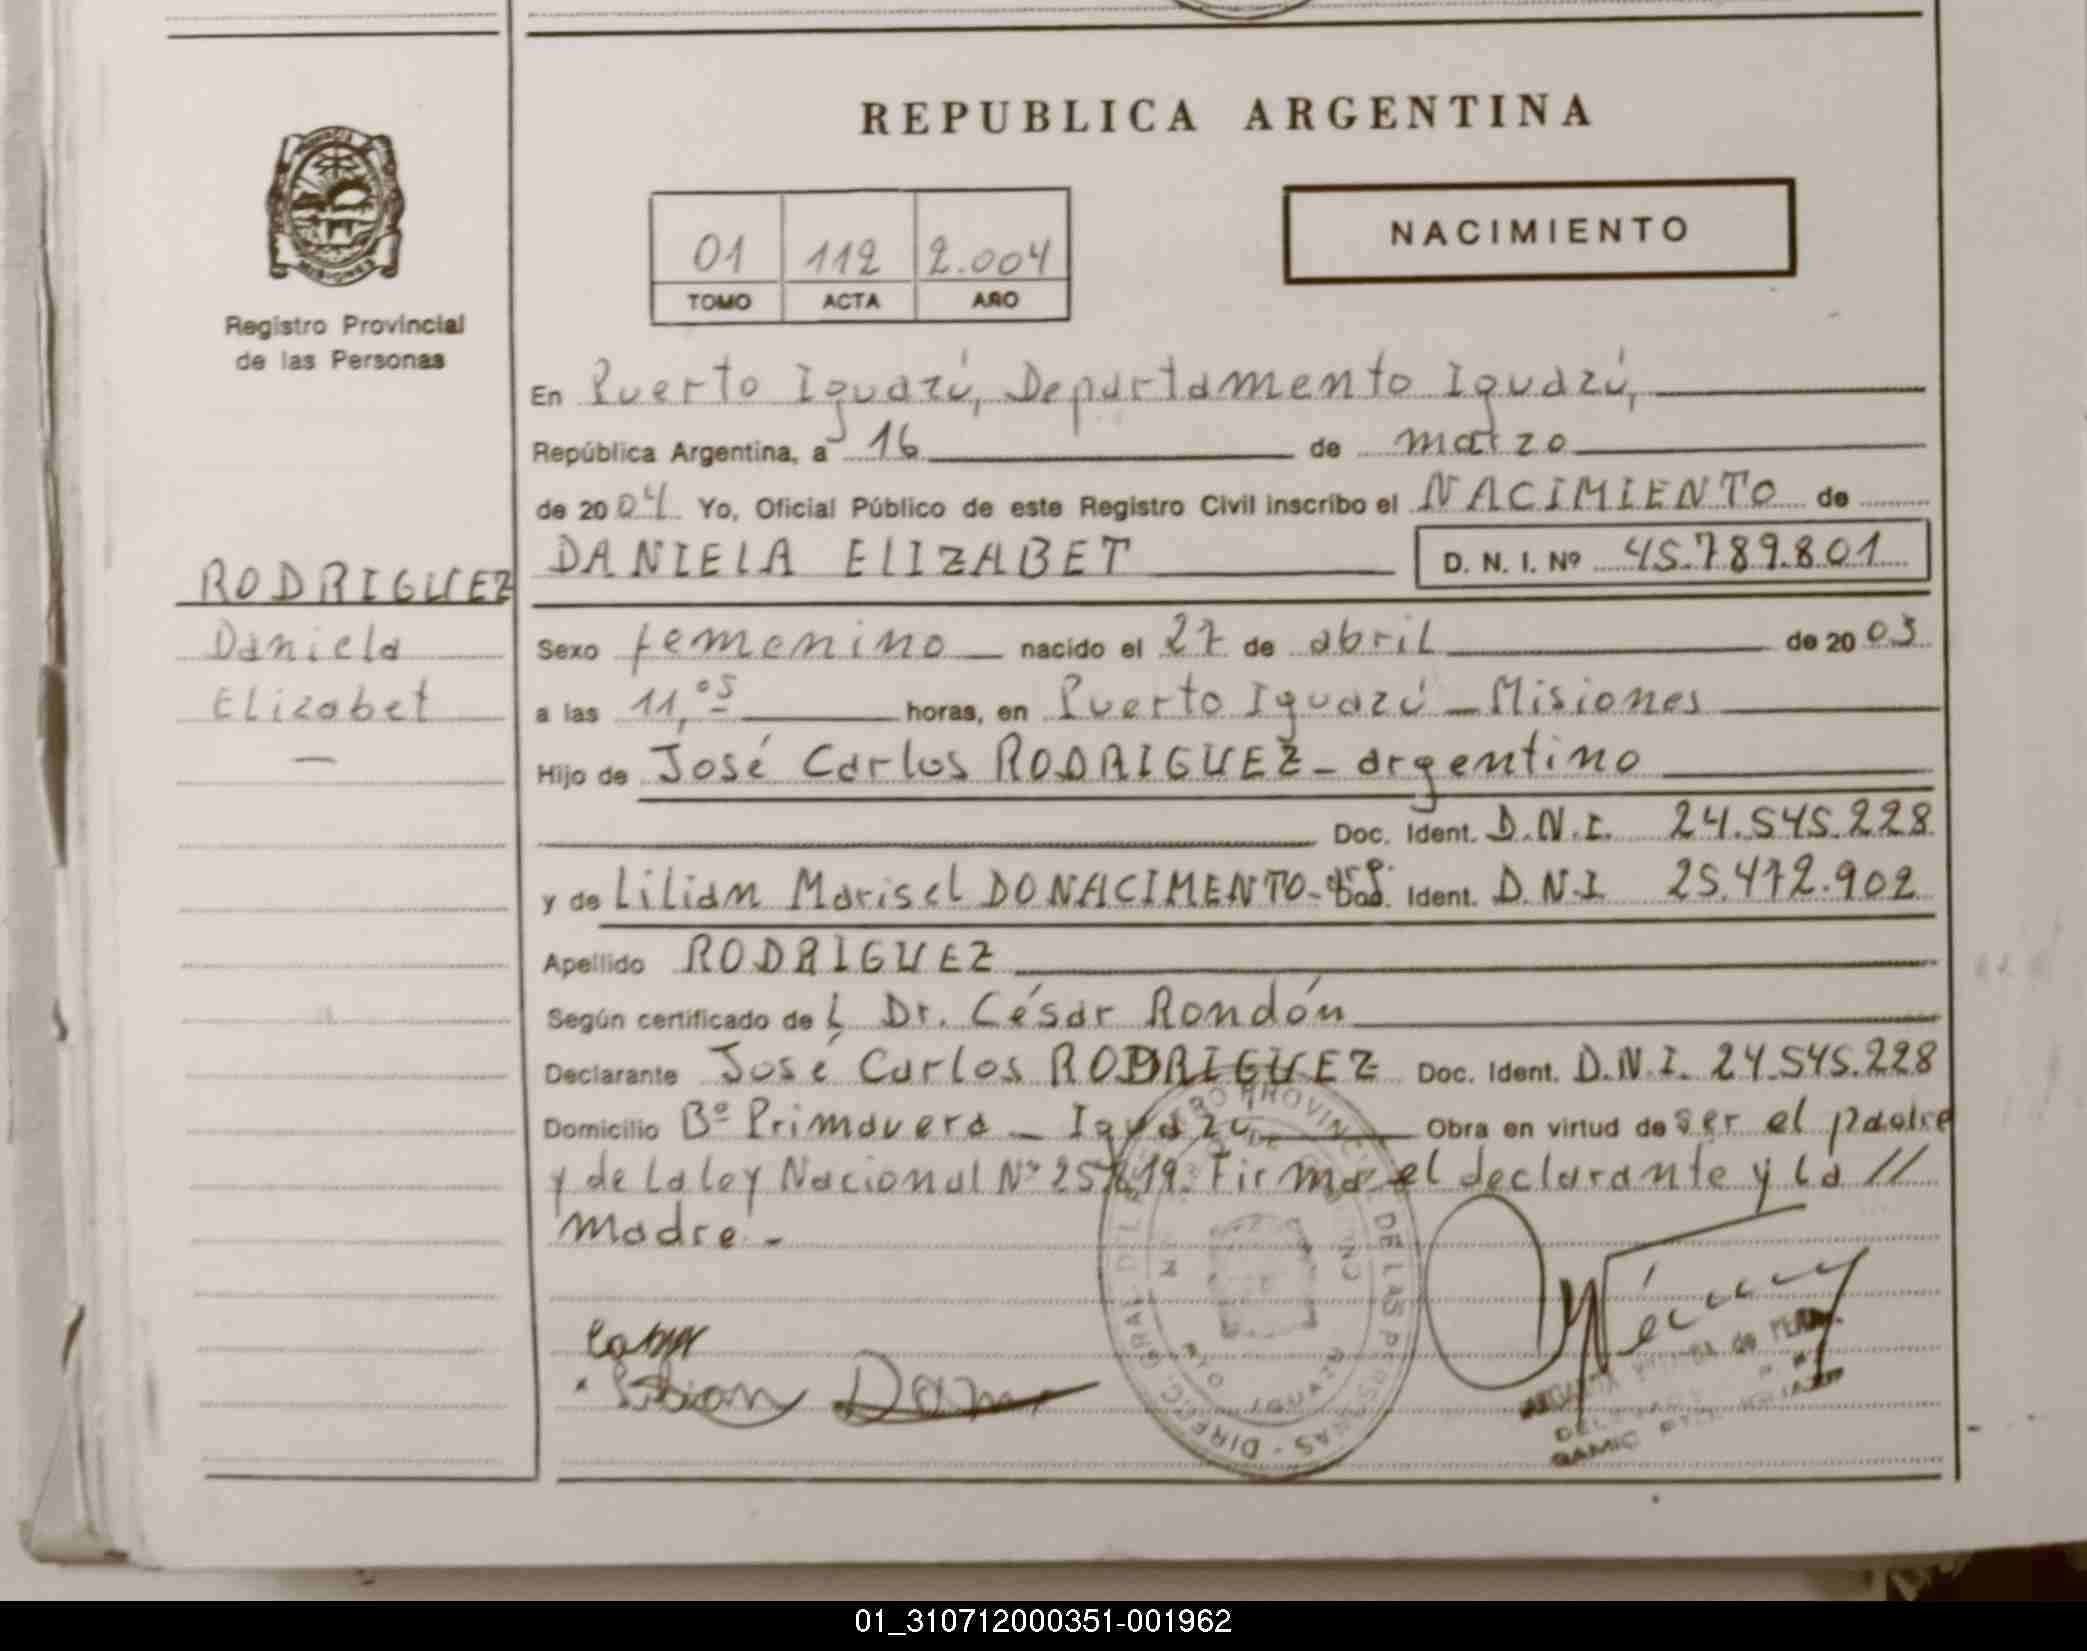 REPUBLICA ARGENTINA
01 112 2.004
TOMO ACTA AÑO
NACIMIENTO
MISIONES
Registro Provincial
de las Personas
RODRIGUEZ
Daniela
Elizabet
En Puerto Iguazú, Departamento Iguazú,
República Argentina, a 16 de marzo
de 2004 Yo, Oficial Público de este Registro Civil inscribo el NACIMIENTO de
DANIELA ELIZABET D. N. I. Nº 45.789.801
Sexo femenino nacido el 27 de abril de 2003
a las 11,05 horas, en Puerto Iguazú - Misiones
Hijo de José Carlos RODRIGUEZ - argentino
Doc. Ident. D.N.I. 24.545.228
y de Lilian Marisel DONACIMENTO - arg. Doc. Ident. D.N.I 25.472.902
Apellido RODRIGUEZ
Según certificado de L Dr. César Rondón
Declarante José Carlos RODRIGUEZ Doc. Ident. D.N.I. 24.545.228
Domicilio Bº Primavera - Iguazú Obra en virtud de ser el padre
y de La ley Nacional Nº 25.819. Firma el declarante y La //
madre.-
DIREC. GRAL. DEL REGISTRO PROVINCIAL DE LAS PERSONAS
IGUAZU
01_310712000351-001962